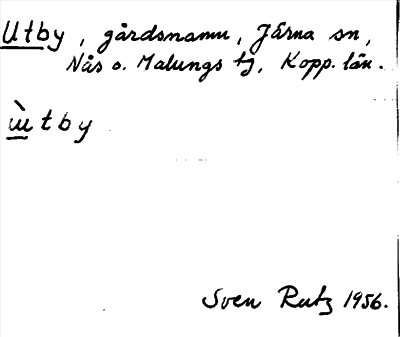 Utby, gårdsnamn, Järna sn,
Nås o. Malungs tg, Kopp. län.
ɯ̀tby
Sven Rutz 1956.